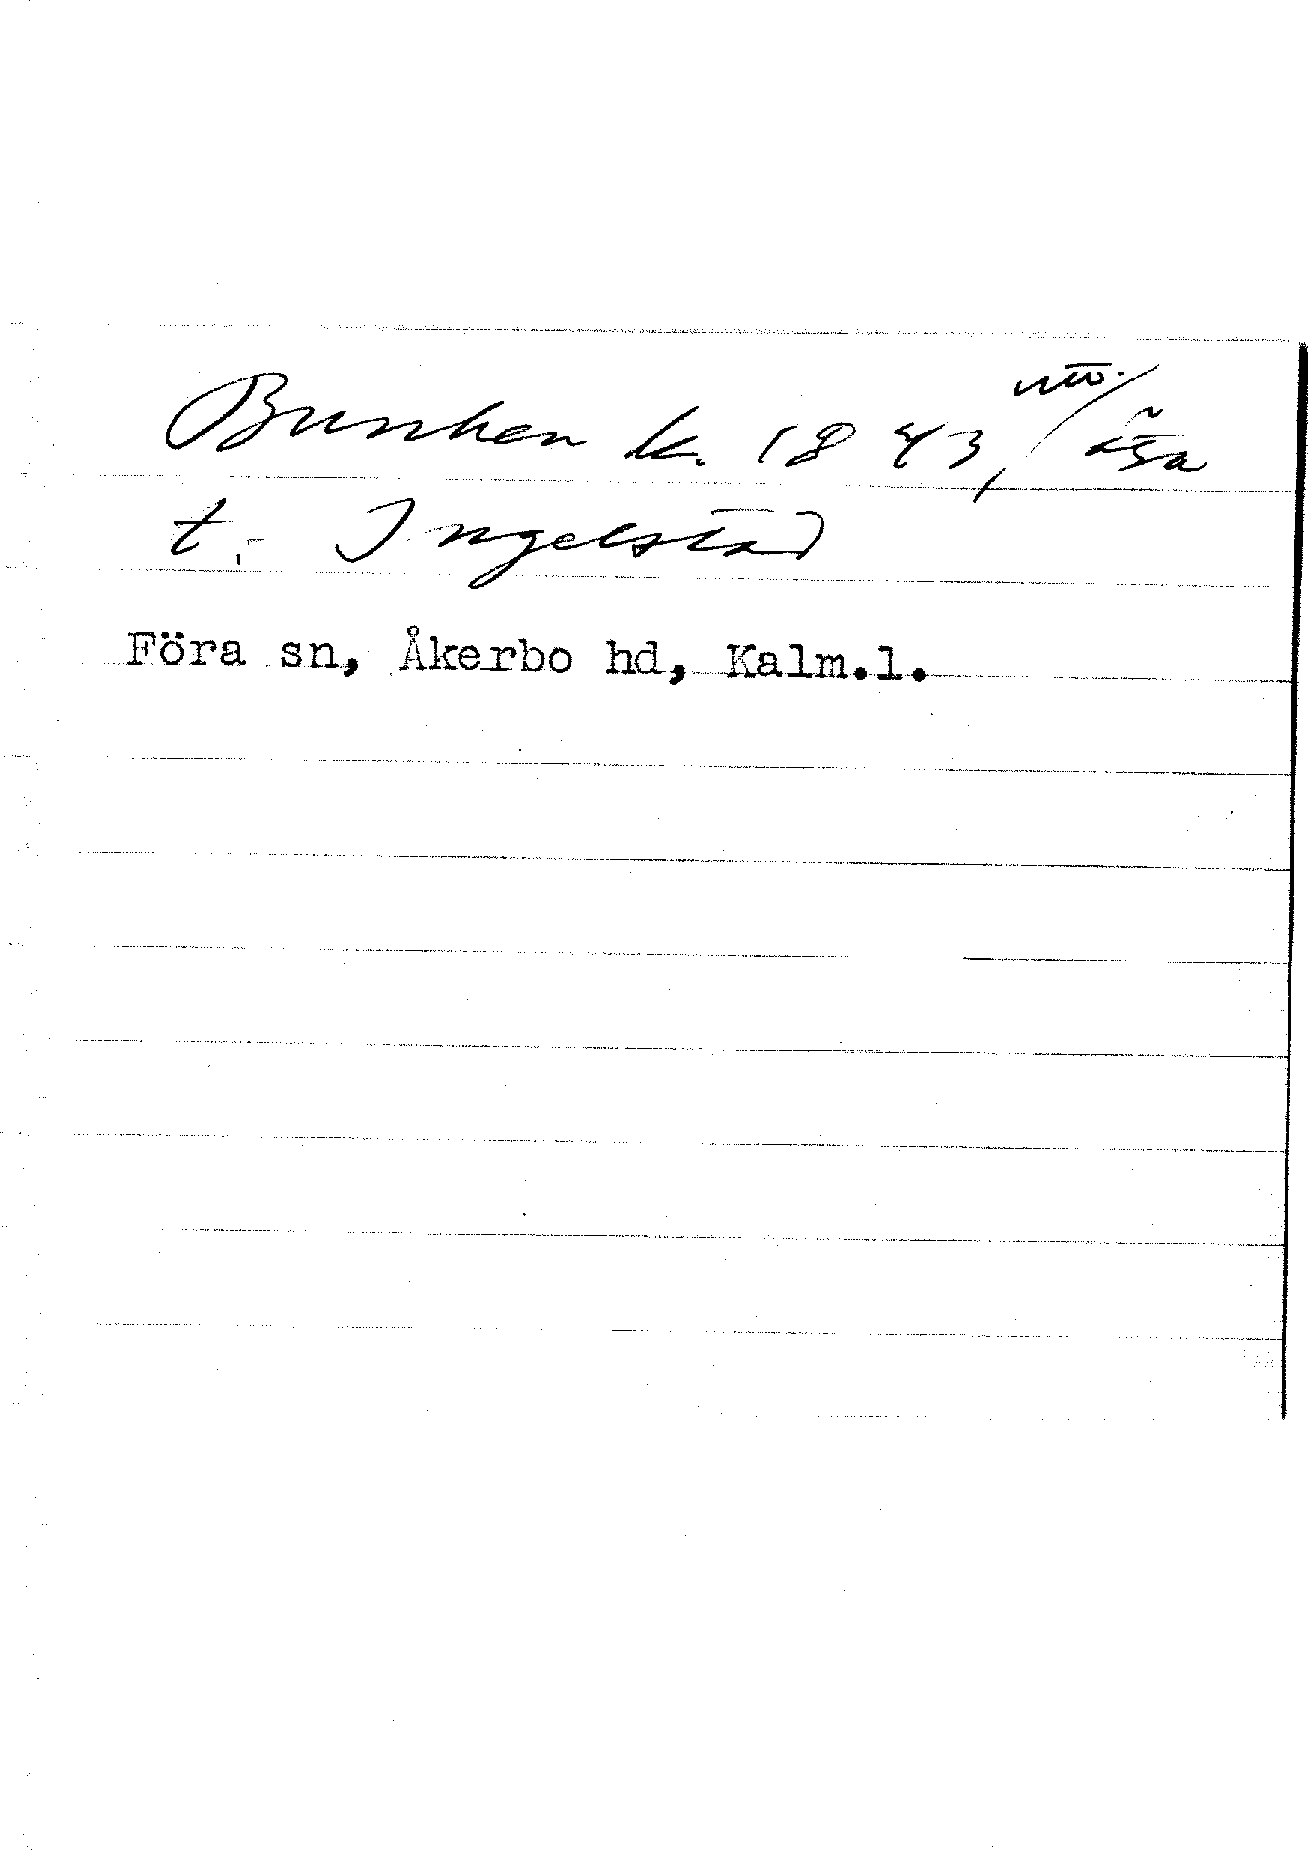 Bunken k. 1843, utv./ äga
t. Ingelstad
Föra sn, Åkerbo hd, Kalm.l.